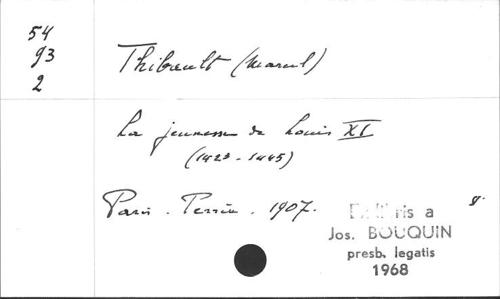 54
93
2
Thibault (Marcel)
La jeunesse de Louis XI
(1423-1445)
Paris. Perrin. 1907. 8°
Ex libris a
Jos. BOUQUIN
presb. legatis
1968